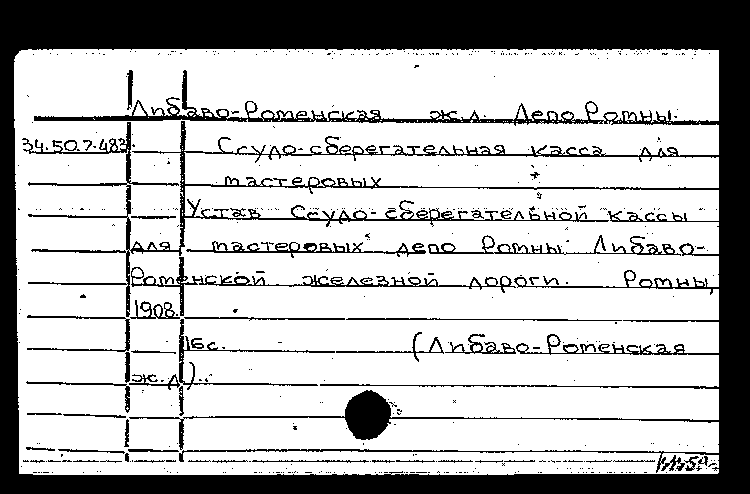 Либаво-Роменская ж.д. Депо Ромны.
34.50.7.483 Ссудо-сберегательная касса для
мастеровых
Устав Ссудо-сберегательной кассы
для мастеровых депо Ромны Либаво-
Роменской железной дороги. Ромны,
1908.
16с. (Либаво-Роменская
ж.д)..